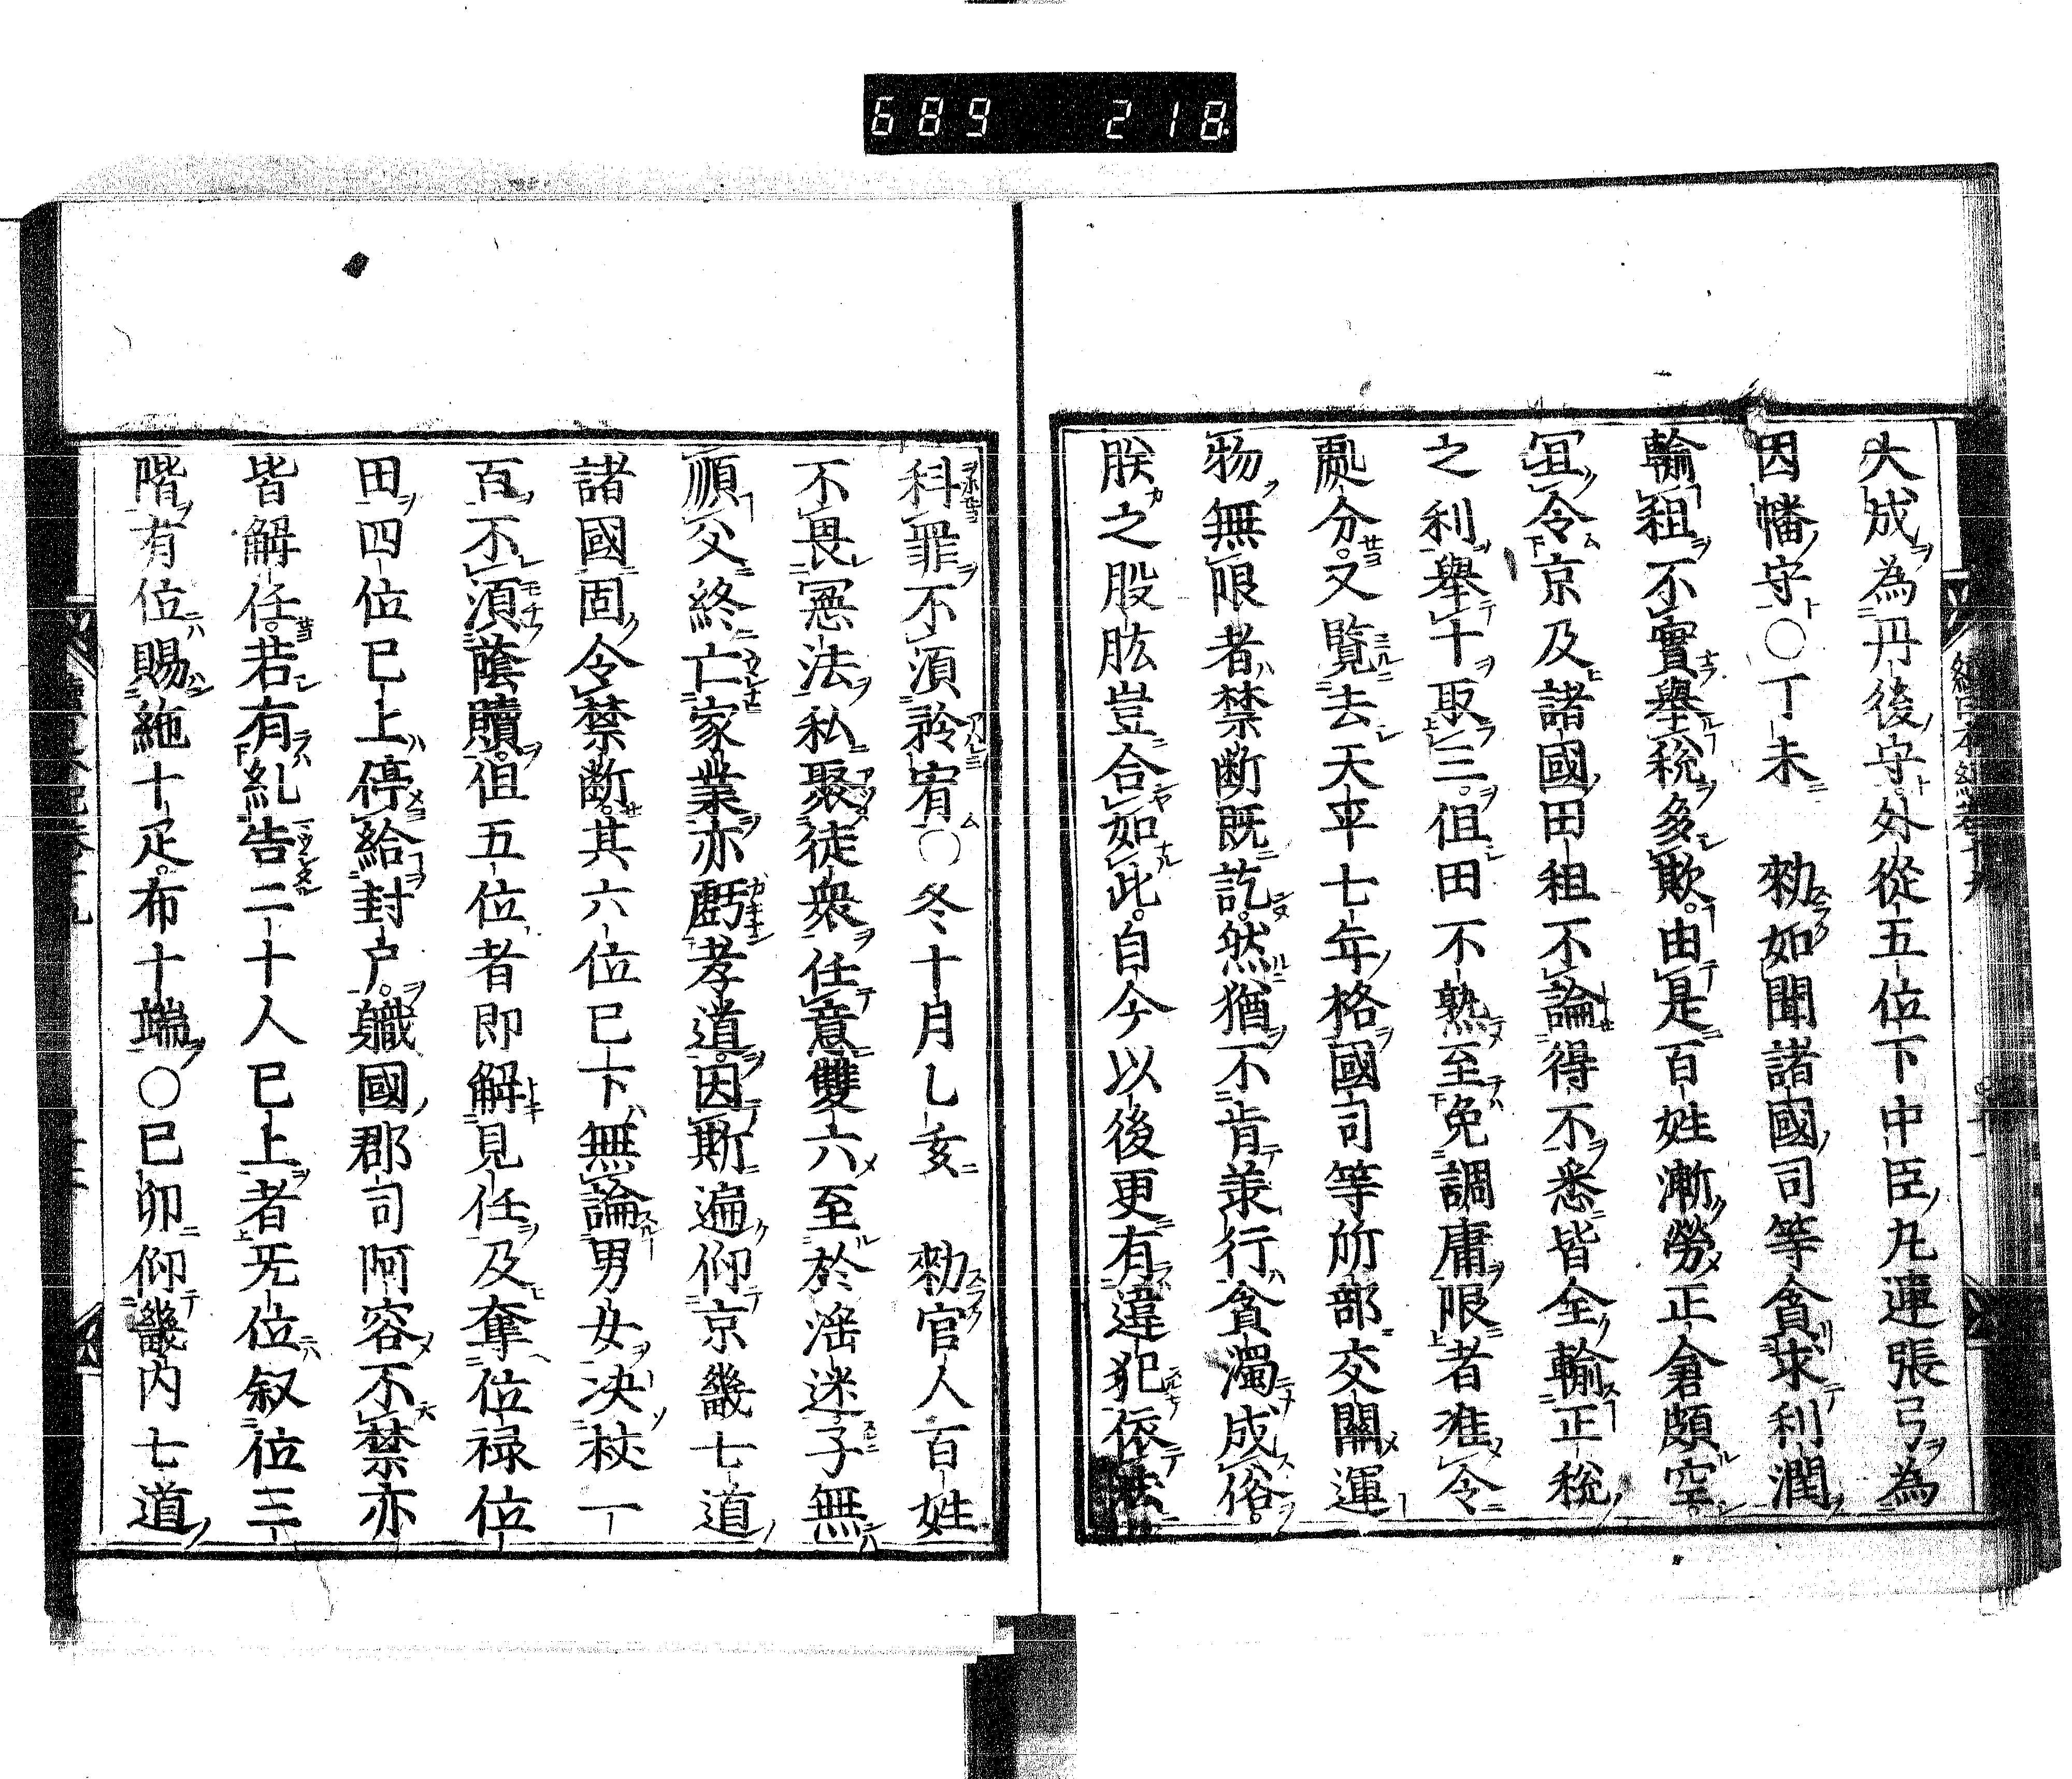 689 218
大成為丹後守。外從五位下中臣丸連張弓為
因幡守〇丁未 勑如聞諸國司等貪求利潤
輸租不實舉稅多欺。由是百姓漸勞正倉頗空
冝令京及諸國田租不論得不悉皆全輸正稅
之利舉十取三。但田不熟至免調庸限者准令
處分。又覽去天平七年格國司等所部交關運
物無限者禁断既訖。然猶不肯兼行貪濁成俗。
朕之股肱豈合如此。自今以後更有違犯依法
科罪不須矜宥〇冬十月乙亥 勑官人百姓
不畏憲法私聚徒衆任意雙六至於淫迷子無
順父終亡家業亦虧孝道。因斯遍仰京畿七道
諸國固令禁断。其六位已下無論男女决杖一
百不須蔭贖。但五位者即解見任及奪位禄位
田四位已上停給封户。職國郡司阿容不禁亦
皆解任。若有糺告二十人已上者无位叙位三
階有位賜絁十疋。布十端〇已卯仰畿内七道